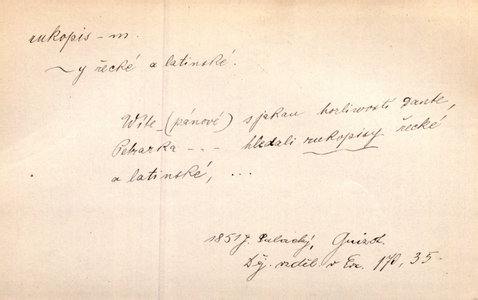 rukopis – m.
~y řecké a latinské.
Wíte (pánové) s jakau horliwostí Dante,
Petrarka --- hledali rukopisy řecké
a latinské, ...
1851 J. Palacký, Guizot
Děj. vzděl. v Eu. 170, 35-